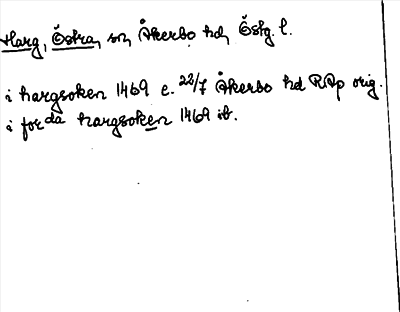 Harg, Östra, sn Åkerbo hd, Östg. l.
i hargsoken 1469 e. 22/7 Åkerbo hd RAp orig.
i forda hargsoken 1469 ib.